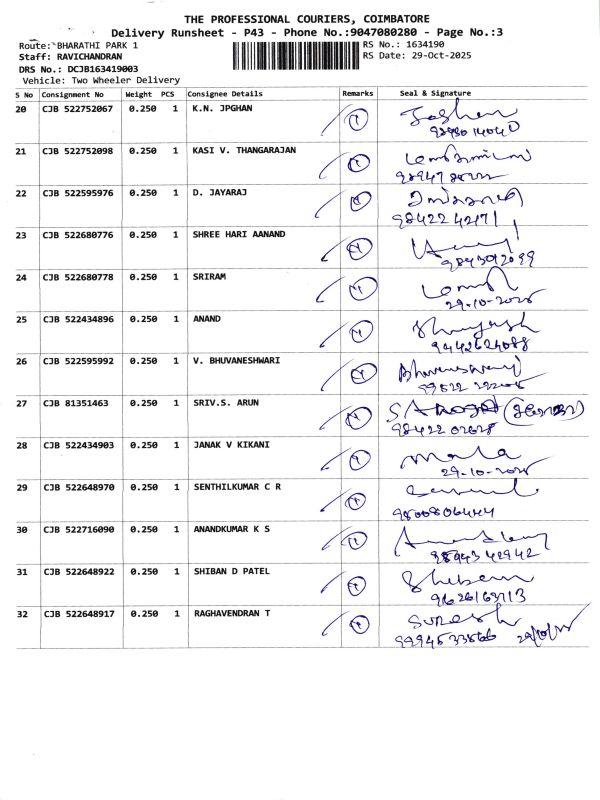 THE PROFESSIONAL COURIERS, COIMBATORE
Delivery Runsheet - P43 - Phone No.:9047080280 - Page No.:3
Route: BHARATHI PARK 1 RS No.: 1634190
Staff: RAVICHANDRAN RS Date: 29-Oct-2025
DRS No.: DCJB163419003
Vehicle: Two Wheeler Delivery
S No Consignment No Weight PCS Consignee Details Remarks Seal & Signature
20 CJB 522752067 0.250 1 K.N. JPGHAN
21 CJB 522752098 0.250 1 KASI V. THANGARAJAN
22 CJB 522595976 0.250 1 D. JAYARAJ
98422 42171
23 CJB 522680776 0.250 1 SHREE HARI AANAND
9843012099
24 CJB 522680778 0.250 1 SRIRAM
29-10-2025
25 CJB 522434896 0.250 1 ANAND
9442624088
26 CJB 522595992 0.250 1 V. BHUVANESHWARI
Bhuvaneswari
27 CJB 81351463 0.250 1 SRIV.S. ARUN
98422 02628
28 CJB 522434903 0.250 1 JANAK V KIKANI
Mala
29-10-2025
29 CJB 522648970 0.250 1 SENTHILKUMAR C R
98008 06444
30 CJB 522716090 0.250 1 ANANDKUMAR K S
98943 42942
31 CJB 522648922 0.250 1 SHIBAN D PATEL
Shiban
9626163113
32 CJB 522648917 0.250 1 RAGHAVENDRAN T
Suresh